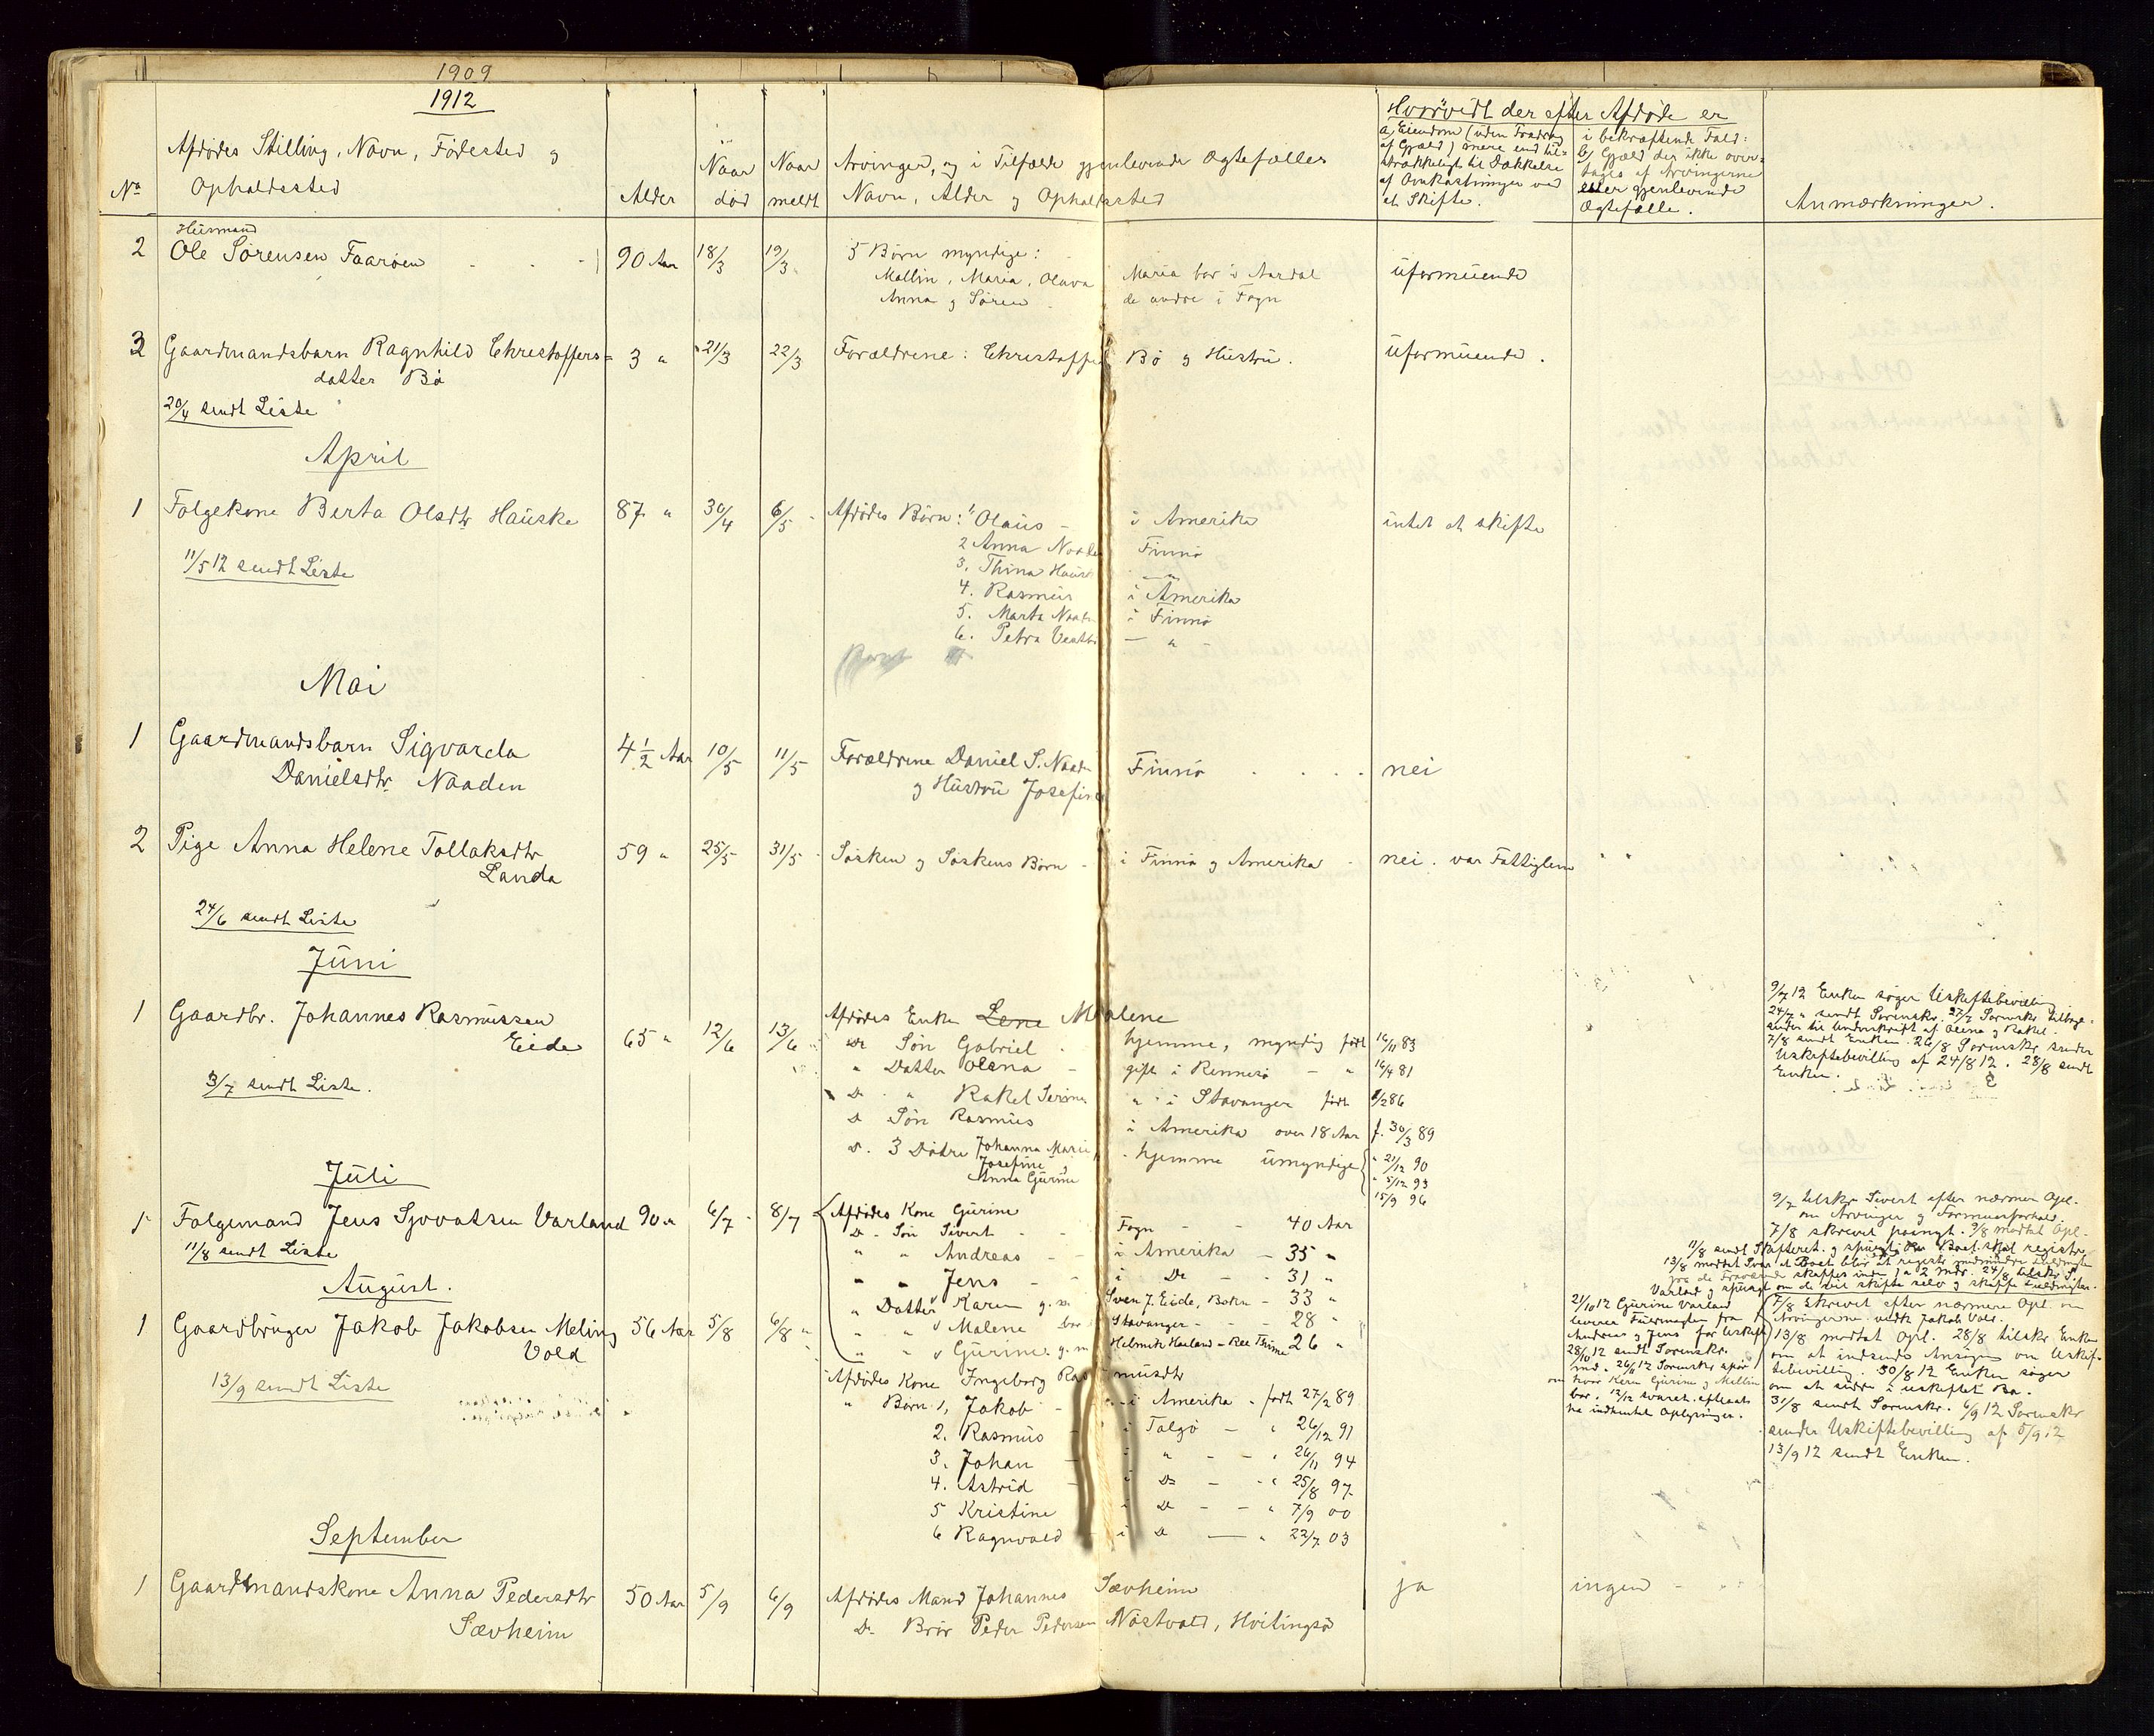 1909
1912
No
Afdødes Stilling, Navn, Fødested og
Opholdssted
Alder
Naar
død
Naar
meldt
Arvinger, og i Tilfælde gjenlevende Ægtefælles
Navn, Alder og Opholdssted
Hvorvidt der efter Afdøde er
a, Eiendom (uden Fradrag
af Gjæld) mere end til-
strækkeligt til Dækkelse
af Omkostninger ved
et Skifte.
i bekræftende Fald:
b, Gjæld der ikke over-
tages af Arvingerne
eller gjenlevende
Ægtefælle.
Anmærkninger.
Husmand
2 Ole Sørensen Faarøen 90 Aar 18/3 19/3 5 Børn myndige: uformuende
Mallin, Maria, Olava Maria bor i Aardal
Anna og Søren de andre i Fogn
3 Gaardmandsbarn Ragnhild Christoffers= 3 " 21/3 22/3 Forældrene: Christoffer Bø og Hustru. uformuende.
datter Bø
20/4 sendt Liste
April
1 Følgekone Berta Olsdtr Hauske 87 " 30/4 6/5 Afdødes Børn: 1 Olaus i Amerika intet at skifte
2 Anna Finnø
11/5 12 sendt Liste
3. Thina Hausk "
4. Rasmus i Amerika
5. Marta i Finnø
6. Petra — "
Mai
1 Gaardmandsbarn Sigvarda 4 1/2 Aar 10/5 11/5 Forældrene Daniel S. Naaden Finnø nei
Danielsdtr. Naaden og Hustru Josefine
2 Pige Anna Helene Tollaksdtr 59 " 25/5 31/5 Søsken og Søskens Børn i Finnø og Amerika nei. var Fattiglem
Landa
24/6 sendt Liste
Juni
1 Gaardbr. Johannes Rasmussen 65 " 12/6 13/6 Afdødes Enke Lene Malene
Eide
Do Søn Gabriel hjemme, myndig født 16/11 83
" Datter Olena gift i Rennesø " 16/4 81
3/7 sendt Liste.
Do " Rakel Serine " i Stavanger født 8/2 86
Do Søn Rasmus i Amerika over 18 Aar f. 30/3 89
Do. 3 Døtre Johanna Marie, hjemme umyndige " 21/12 90
Josefine " 5/12 93
Anna Gurine 15/9 96
9/7 12 Enken søger Uskiftebevilling
24/7 " sendt Sorenskr. 27/7 Sorenskr tilbage-
sender til Underskrift af Olena og Rakel.
7/8 sendt Enken. 26/8 Sorenskr sender
Uskiftebevilling af 24/8 12. 28/8 sendt
Enken.
Juli
1 Følgemand Jens Sjovatsen Varland 90 " 6/7 8/7 Afdødes Kone Gurine
Do Søn Sivert Fogn 40 Aar
11/8 sendt Liste
" " Andreas i Amerika 35 "
" " Jens i Do 31 "
" Datter Karen g. m. Sven J. Eide, Bokn 33 "
" " Malene bor Stavanger 28 "
" " Gurine g. m Helmik Haaland - Ree Thime 26 "
9/7 tilskr. Sivert efter nærmere Opl.
om Arvinger og Formuesforhold.
7/8 skrevet paanyt. 9/8 modtat Opl.
11/8 sendt Skifteret. og spurgt om Boet skal registr.
13/8 modtat Svar at Boet blir at registr. medmindre Fuldmagt
fra de Fraværende skaffes inden 1 a 2 Mdr. 24/8 tilskr. S.
Varland og spurgt om de vil skifte selv og skaffe Fuldmagter.
21/10 12 Gurine Varland
leverer Fuldmagten fra
Andreas og Jens for Uskifte
28/10 12 sendt Sorenskr.
ind. 26/11 12 Sorenskr spør
om hvor Karen Gurine og Mallin
bor. 12/12 svaret. efteraat
ha indhentet Oplysninger.
August.
1 Gaardbruger Jakob Jakobsen Meling 56 Aar 5/8 6/8 "
Vold
13/9 sendt Liste
Afdødes Kone Ingeborg Rasmusdtr
" Børn 1, Jakob i Amerika født 27/2 89
2. Rasmus i Talgø " 26/12 91
3. Johan " 26/11 94
4. Astrid i Do " 25/8 97
5 Kristine " Do " 7/9 00
6 Ragnvald i Do " 23/7 03
7/8 Skrevet efter nærmere Opl. om
Arvingerne vedk Jakob Vold.
13/8 modtat Opl. 28/8 tilskr. Enken
om at indsende Ansøgn om Uskif-
tebevilling. 30/8 12 Enken søger
om at sidde i uskiftet Bo.
31/8 sendt Sorenskr. 6/9 12 Sorenskr
sender Uskiftebevilling af 5/9 12
13/9 12 sendt Enken.
September
1 Gaardmandskone Anna Pedersdtr 50 Aar 5/9 6/9 Afdødes Mand Johannes Sævheim ja ingen
Sævheim
Do Bror Peder Pedersen Nøstvold, Hvitingsø